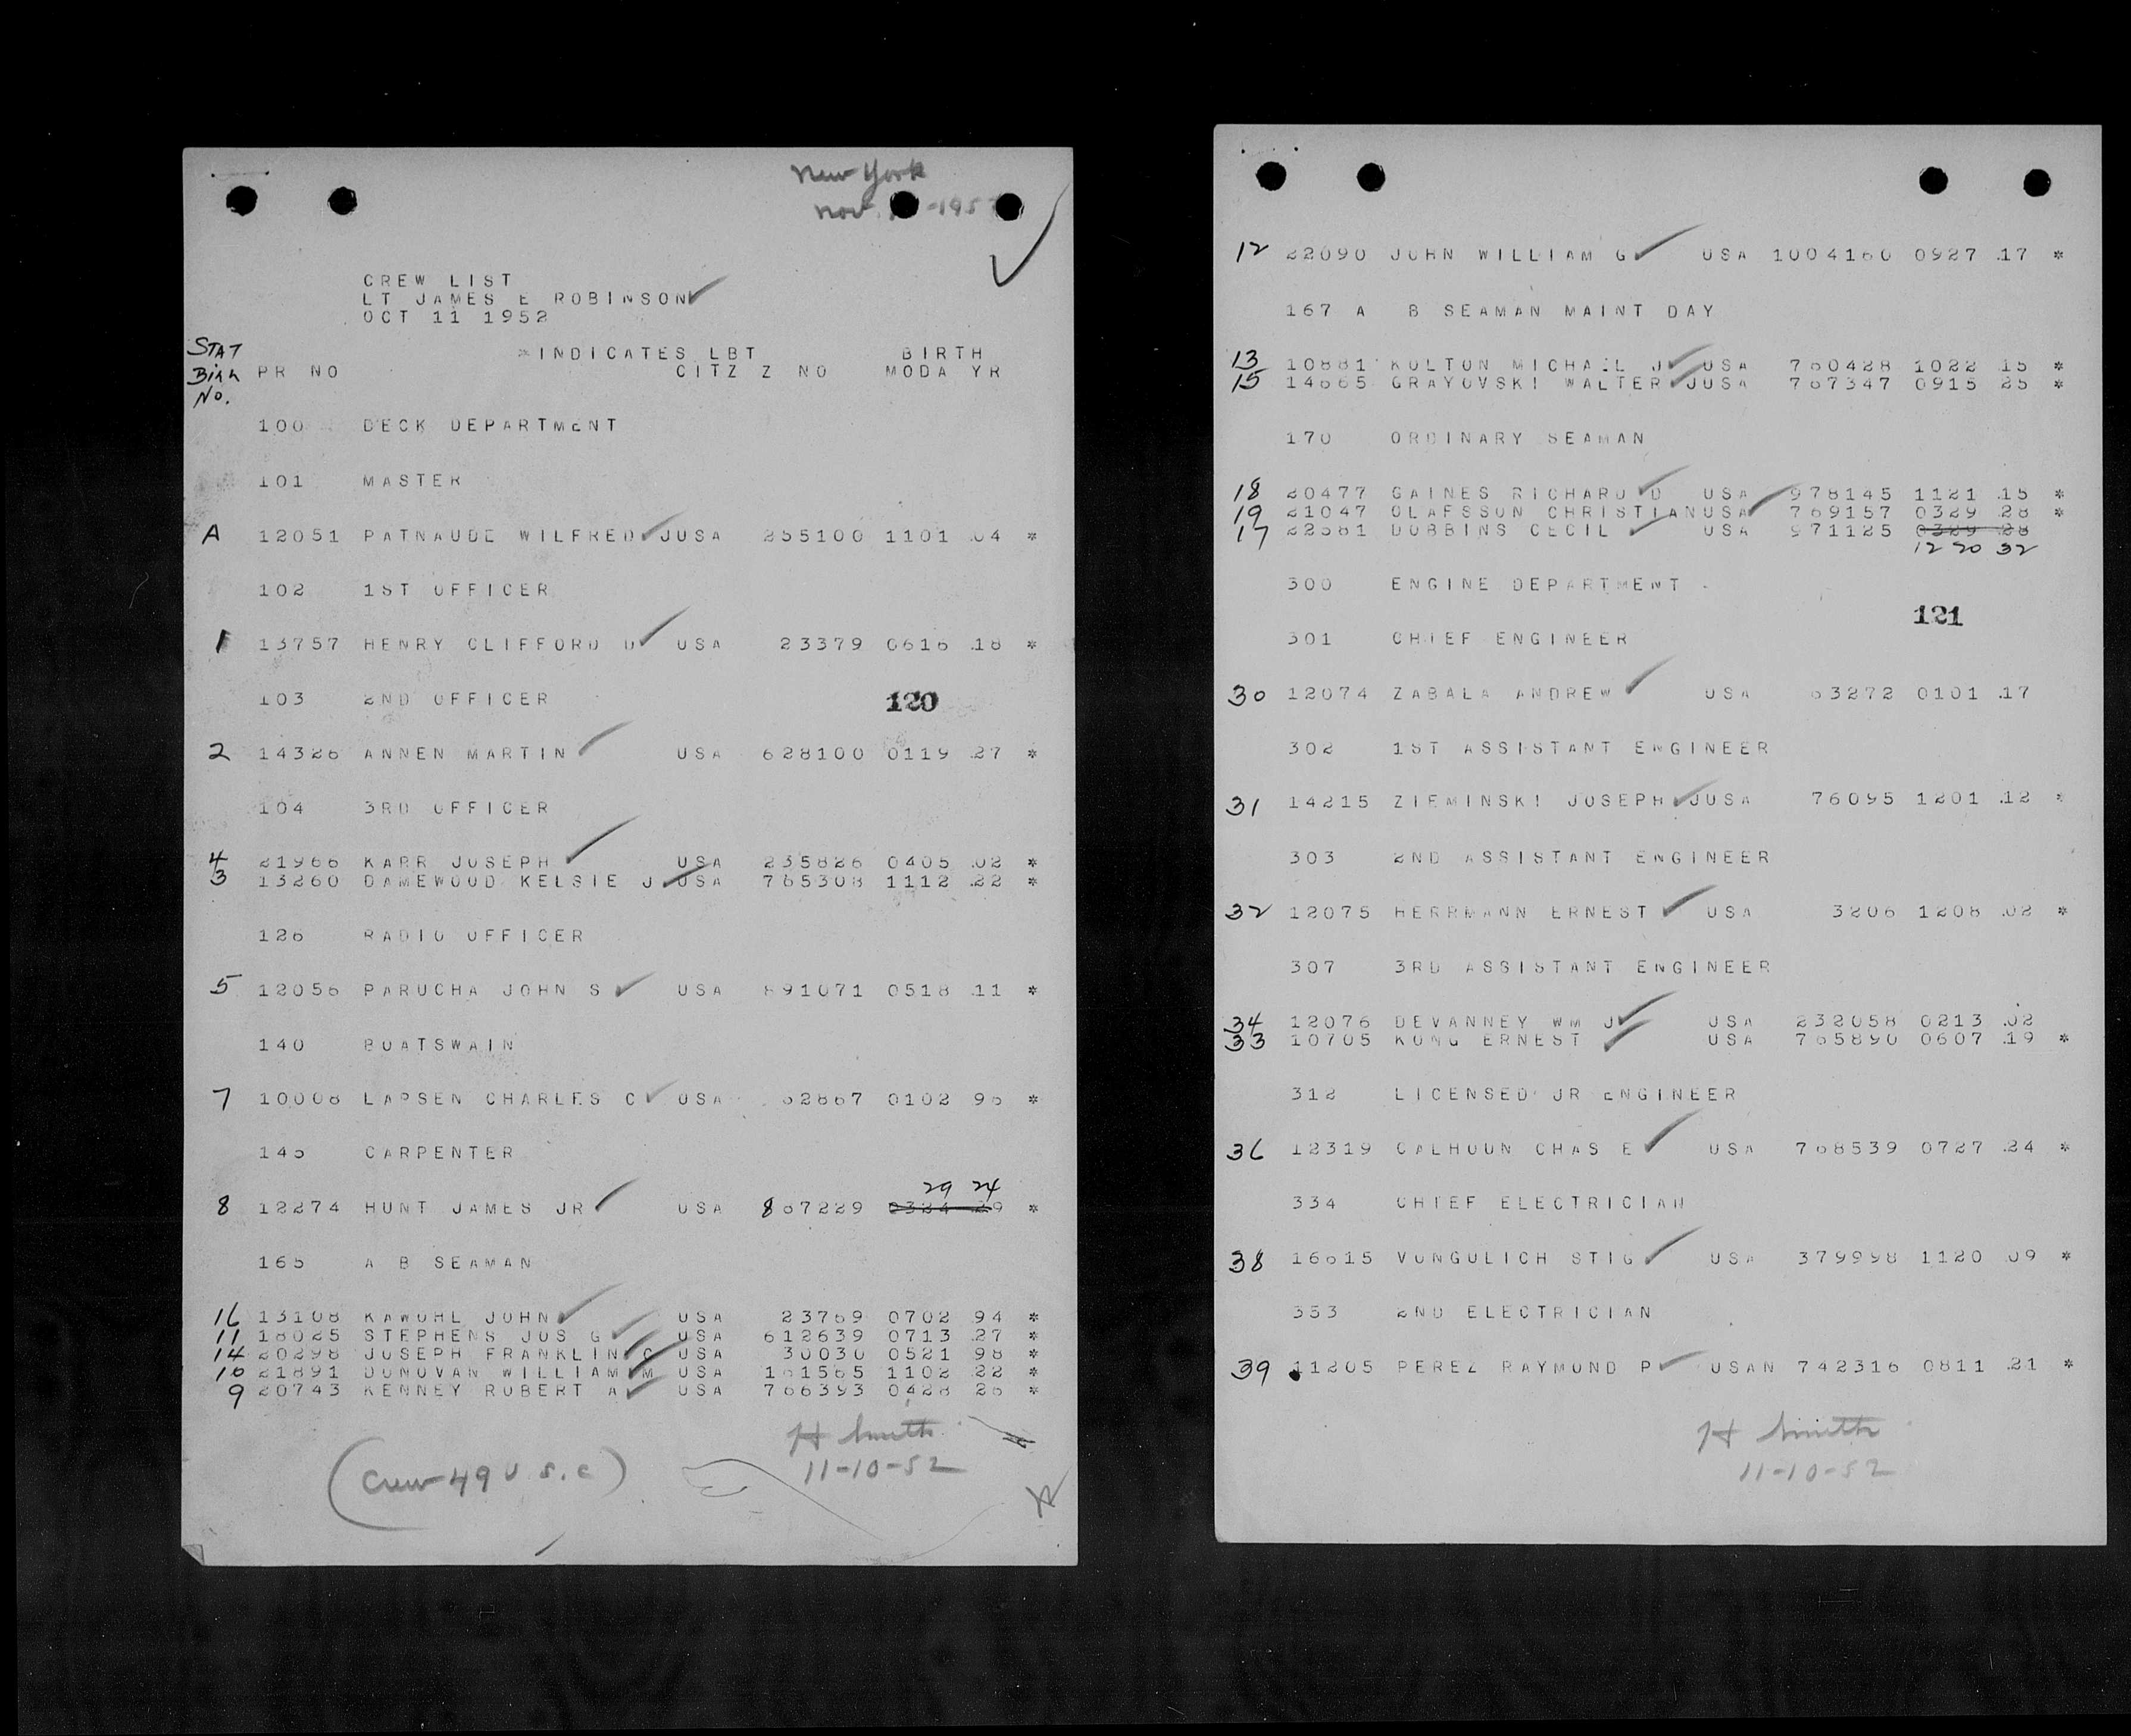 New York
Nov. -195
CREW LIST
LT JAMES E ROBINSON
OCT 11 1952
STAT
Birth
No.
*INDICATES LBT BIRTH
PR NO CITZ Z NO MODA YR
100 DECK DEPARTMENT
101 MASTER
A 12051 PATNAUDE WILFRED J USA 255100 1101 .04 *
102 1ST OFFICER
1 13757 HENRY CLIFFORD D USA 23379 0616 .18 *
103 2ND OFFICER
120
2 14326 ANNEN MARTIN USA 628100 0119 .27 *
104 3RD OFFICER
4 21966 KARR JOSEPH USA 235826 0405 .02 *
3 13260 DAMEWOOD KELSIE J USA 765308 1112 .22 *
126 RADIO OFFICER
5 12056 PARUCHA JOHN S USA 891071 0518 .11 *
140 BOATSWAIN
7 10008 LARSEN CHARLES C USA 62867 0102 96 *
145 CARPENTER
29 24
8 12274 HUNT JAMES JR USA 867229 0324 29 *
165 A B SEAMAN
16 13108 KAWOHL JOHN USA 23769 0702 94 *
11 18025 STEPHENS JOS G USA 612639 0713 .27 *
14 20298 JOSEPH FRANKLIN C USA 30030 0521 98 *
10 21891 DONOVAN WILLIAM M USA 161565 1102 .22 *
9 20743 KENNEY ROBERT A USA 766393 0428 26 *
H Smith
11-10-52
(Crew 49 U.S.C)
12 22090 JOHN WILLIAM G USA 1004160 0927 .17 *
167 A B SEAMAN MAINT DAY
13 10881 KOLTON MICHAEL J USA 760428 1022 .15 *
15 14665 GRAYOVSKI WALTER J USA 767347 0915 25 *
170 ORDINARY SEAMAN
18 20477 GAINES RICHARD D USA 978145 1121 .15 *
19 21047 OLAFSSON CHRISTIAN USA 769157 0329 .28 *
17 22581 DOBBINS CECIL USA 971125 0329 .28
12 20 32
300 ENGINE DEPARTMENT
121
301 CHIEF ENGINEER
30 12074 ZABALA ANDREW USA 63272 0101 .17
302 1ST ASSISTANT ENGINEER
31 14215 ZIEMINSKI JOSEPH J USA 76095 1201 .12 *
303 2ND ASSISTANT ENGINEER
32 12075 HERRMANN ERNEST USA 3206 1208 .02 *
307 3RD ASSISTANT ENGINEER
34 12076 DEVANNEY WM J USA 232058 0213 .02
33 10705 KONG ERNEST USA 765890 0607 .19 *
312 LICENSED JR ENGINEER
36 12319 CALHOUN CHAS E USA 768539 0727 .24 *
334 CHIEF ELECTRICIAN
38 16615 VONGULICH STIG USA 379998 1120 .09 *
353 2ND ELECTRICIAN
39 11205 PEREZ RAYMOND P USAN 742316 0811 .21 *
H Smith
11-10-52